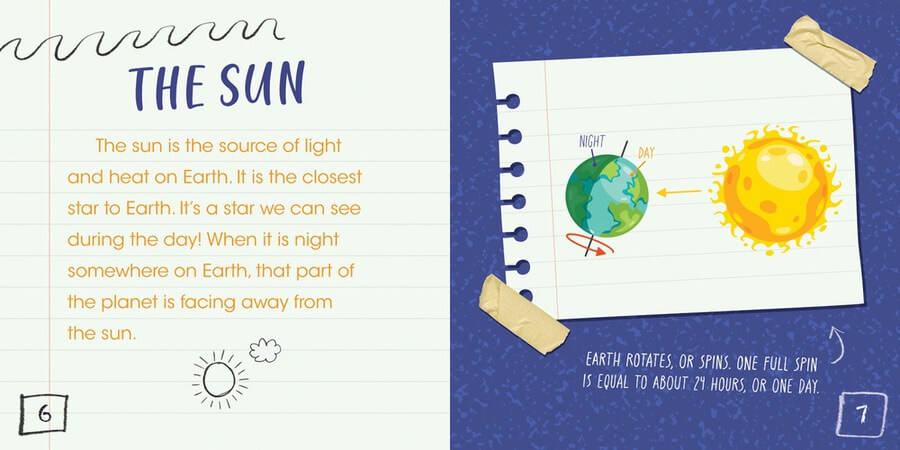 THE SUN
The sun is the source of light
and heat on Earth. It is the closest
star to Earth. It's a star we can see
during the day! When it is night
somewhere on Earth, that part of
the planet is facing away from
the sun.
6
NIGHT
DAY
EARTH ROTATES, OR SPINS. ONE FULL SPIN
IS EQUAL TO ABOUT 24 HOURS, OR ONE DAY.
7